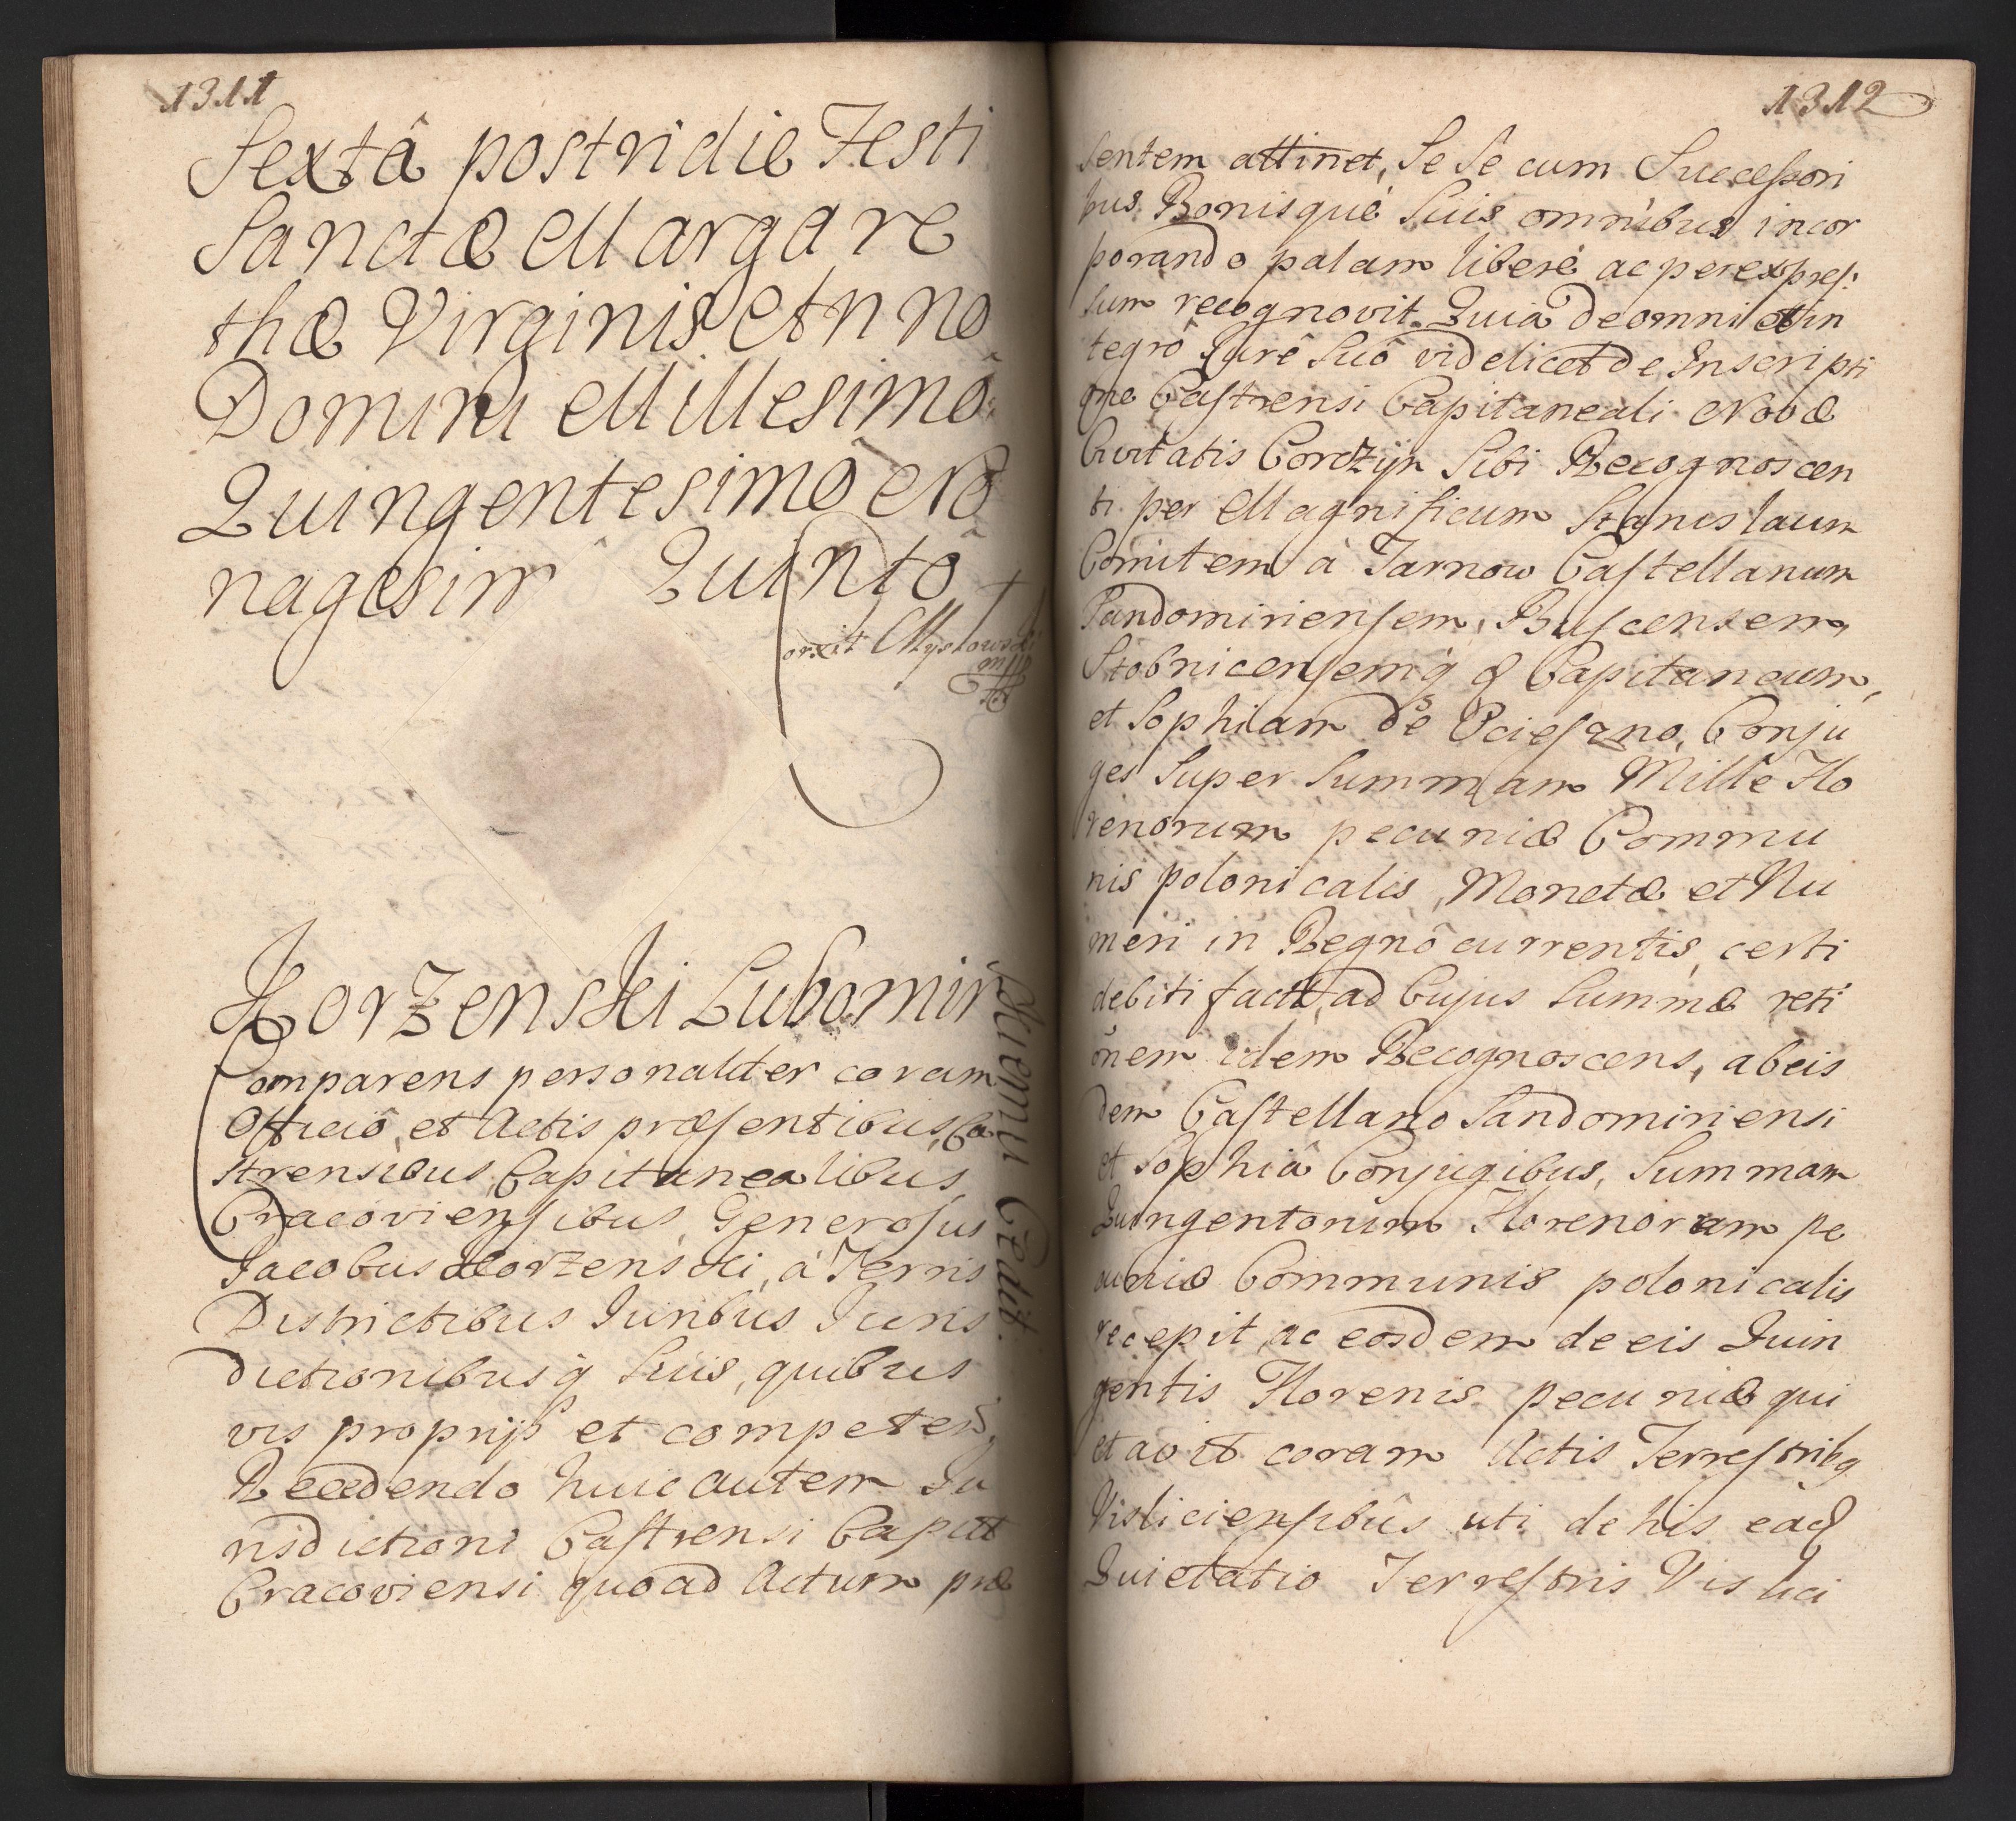 1311
Sextâ postridie Festi
Sanctæ Margare
thæ Virginis Anno
Domini Millesimô
Quingentesimô No
nagesim Quintô
orxit
Korzenski Lubomir
skiemu Cedit.
Comparens personaliter coram
Officiô, et Actis præsentibus, Ca
strensibus, Capitanealibus,
Cracoviensibus, Generosus
Jacobus Korzenski, à Terris
Districtibus Juribus Juris
dictionibusq̨ Suis, quibus
vis proprijs et competen̄.
Recedendo huic autem Ju
risdictioni Castrensi Capit
Cracoviensi quoad Actum præ
1312
sentem attinet, Se Se cum Successori
bus Bonisque Suis omnibus incor
porando palam liberè ac per expres:
sum recognovit. Quia De omni et in
tegrô Jurê Suô videlicet de Inscripti
one Castrensi Capitaneali Novæ
Civitatis Corczÿn Sibi Recognoscen
ti per Magnificum Stanislaum
Comitem à Tarnow Castellanum
Sandomiriensem, Buscensem,
Stobnicensemq̨ Capitaneum,
et Sophiam de Ociessyno, Conju
ges Super Summam Mille Flo
renorum pecuniæ Commu
nis polonicalis, Monetæ et Nu
meri in Regnô currentis, certi
debiti facta, ad Cujus Summæ rõti
onem idem Recognoscens, ab eis
dem Castellano Sandomiriensi
et Sophiâ Conjugibus, Summam
Quingentorum Florenorum pe
cuniæ Communis polonicalis
recepit, ac eosdem de eis Quin
gentis Florenis pecuniæ qui
etavit coram Actis Terrestribq
Visliciensibûs uti de his eadē
Quietatio Terrestris Vislici